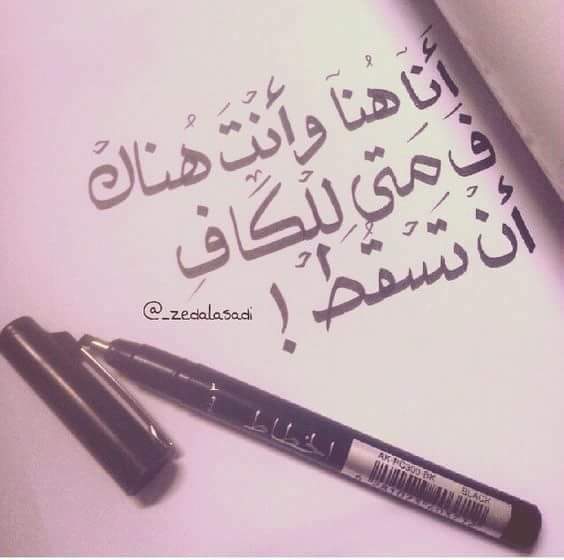 أَنَا هُنَا وأَنْتَ هُناكْ
فَمَتَى لِلْكَافِ
أَنْ تَسْقُطَ !
@_zedalasadi
الخطاط
AK-PC300-BK
BLACK